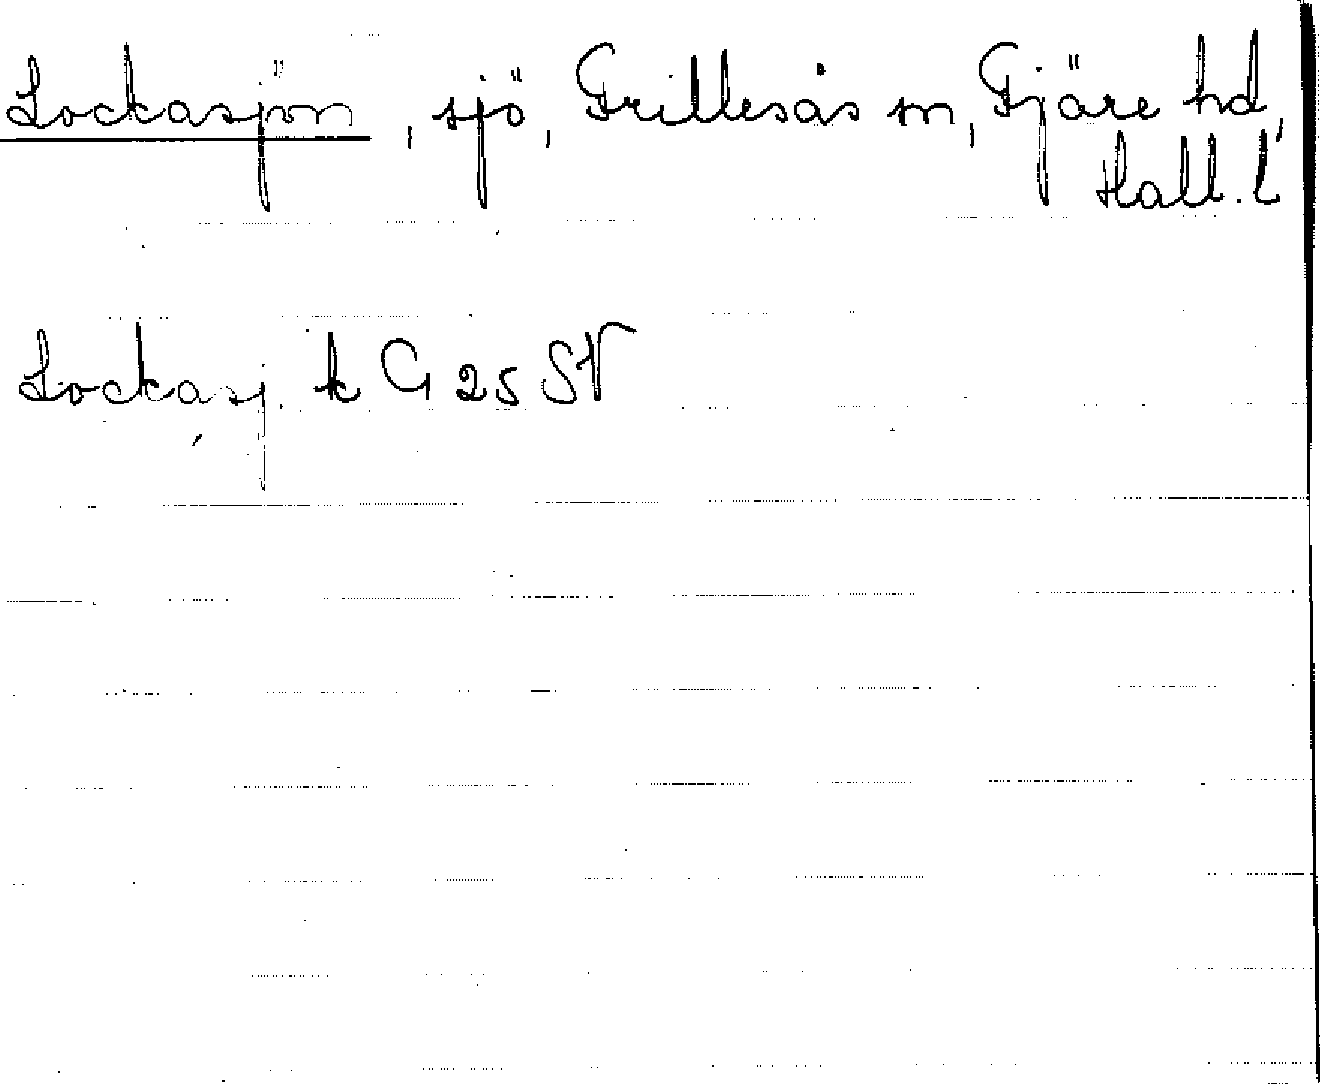 Lockasjön, sjö, Frillesås sn, Fjäre hd,
Hall. l
Lockasj. k G 25 SV